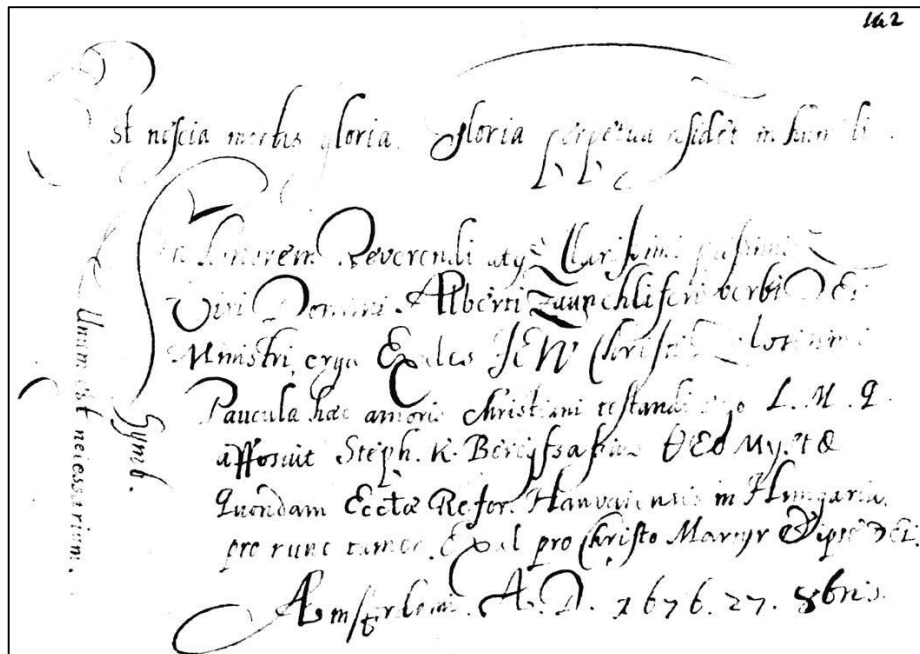 162
Est nescia mortis gloria. Gloria perpetua residet in humili.
In honorem Reverendi atq; Clarissimi
Viri Domini Alberti verbi Dei
Ministri, erga Exules IESV Christi
Paucula haec amoris Christiani testandi ergo L. M. Q.
apposuit Steph. K. ΘΕΟ
Quondam Ecctae Refor. Hanvaiensis in Hungaria,
pro nunc tamen Exul pro Christo Martyr
Amsterdam. A. D. 1676. 27. 8bris.
Symb.
Unum est necessarium.